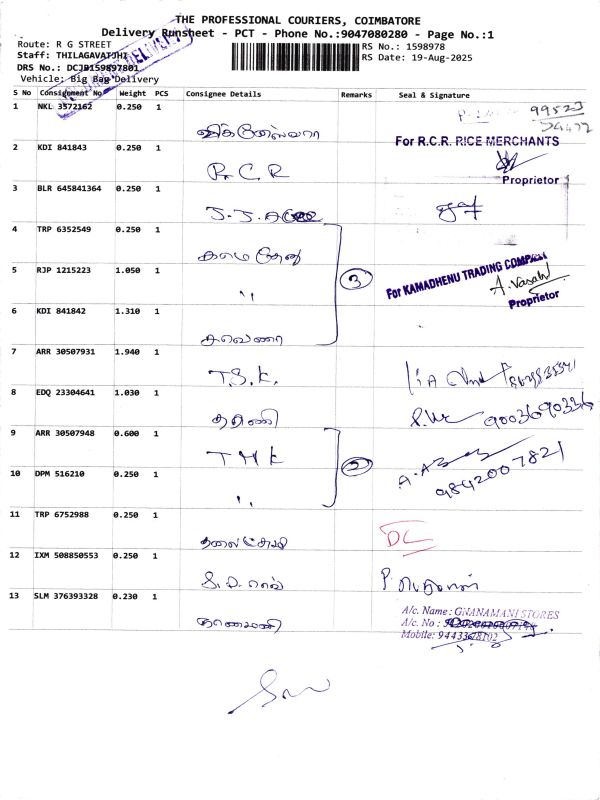 THE PROFESSIONAL COURIERS, COIMBATORE
Delivery Runsheet - PCT - Phone No.:9047080280 - Page No.:1
Route: R G STREET
RS No.: 1598978
Staff: THILAGAVATJHI
RS Date: 19-Aug-2025
DRS No.: DCJB159897801
Vehicle: Big Bag Delivery
S No Consignment No Weight PCS Consignee Details Remarks Seal & Signature
1 NKL 3572162 0.250 1
விக்னேஸ்வரா
For R.C.R. RICE MERCHANTS
2 KDI 841843 0.250 1
R. C. R
Proprietor
3 BLR 645841364 0.250 1
4 TRP 6352549 0.250 1
காமதேனு
5 RJP 1215223 1.050 1
"
3
For KAMADHENU TRADING COMPANY
A. Vasan
Proprietor
6 KDI 841842 1.310 1
7 ARR 30507931 1.940 1
T.S.K.
8 EDQ 23304641 1.030 1
தரணி
9003690336
9 ARR 30507948 0.600 1
T M K
2
9842007821
10 DPM 516210 0.250 1
"
11 TRP 6752988 0.250 1
DC
12 IXM 508850553 0.250 1
13 SLM 376393328 0.230 1
A/c. Name : GNANAMANI STORES
A/c. No :
Mobile: 9443378102